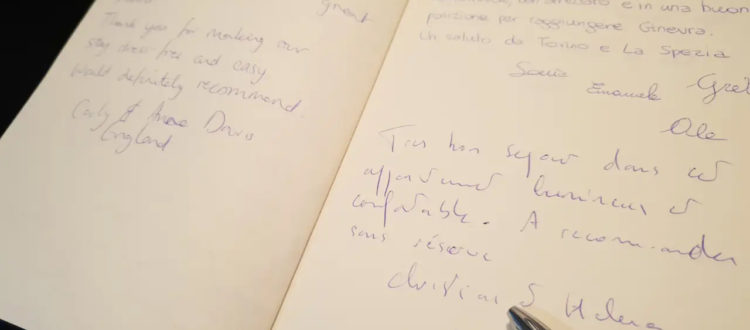 great
Thank you for making our
stay stress free and easy
Would definitely recommend.
Carly & Anne Davis
England
e in una buona
posizione per raggiungere Ginevra.
Un saluto da Torino e La Spezia
Sonia
Emanuele
Ale
Tres bon sejour dans cet
appartement lumineux et
confortable. A recommander
sans réserve
Christian & Helena